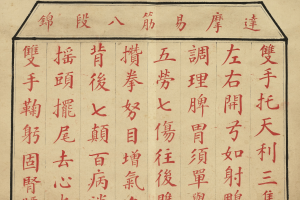 達摩易筋八段錦
雙手托天利三
左右開弓如射
調理脾胃須單
五勞七傷往後
攢拳努目增氣
背後七顛百病
搖頭擺尾去心
雙手鞠躬固腎